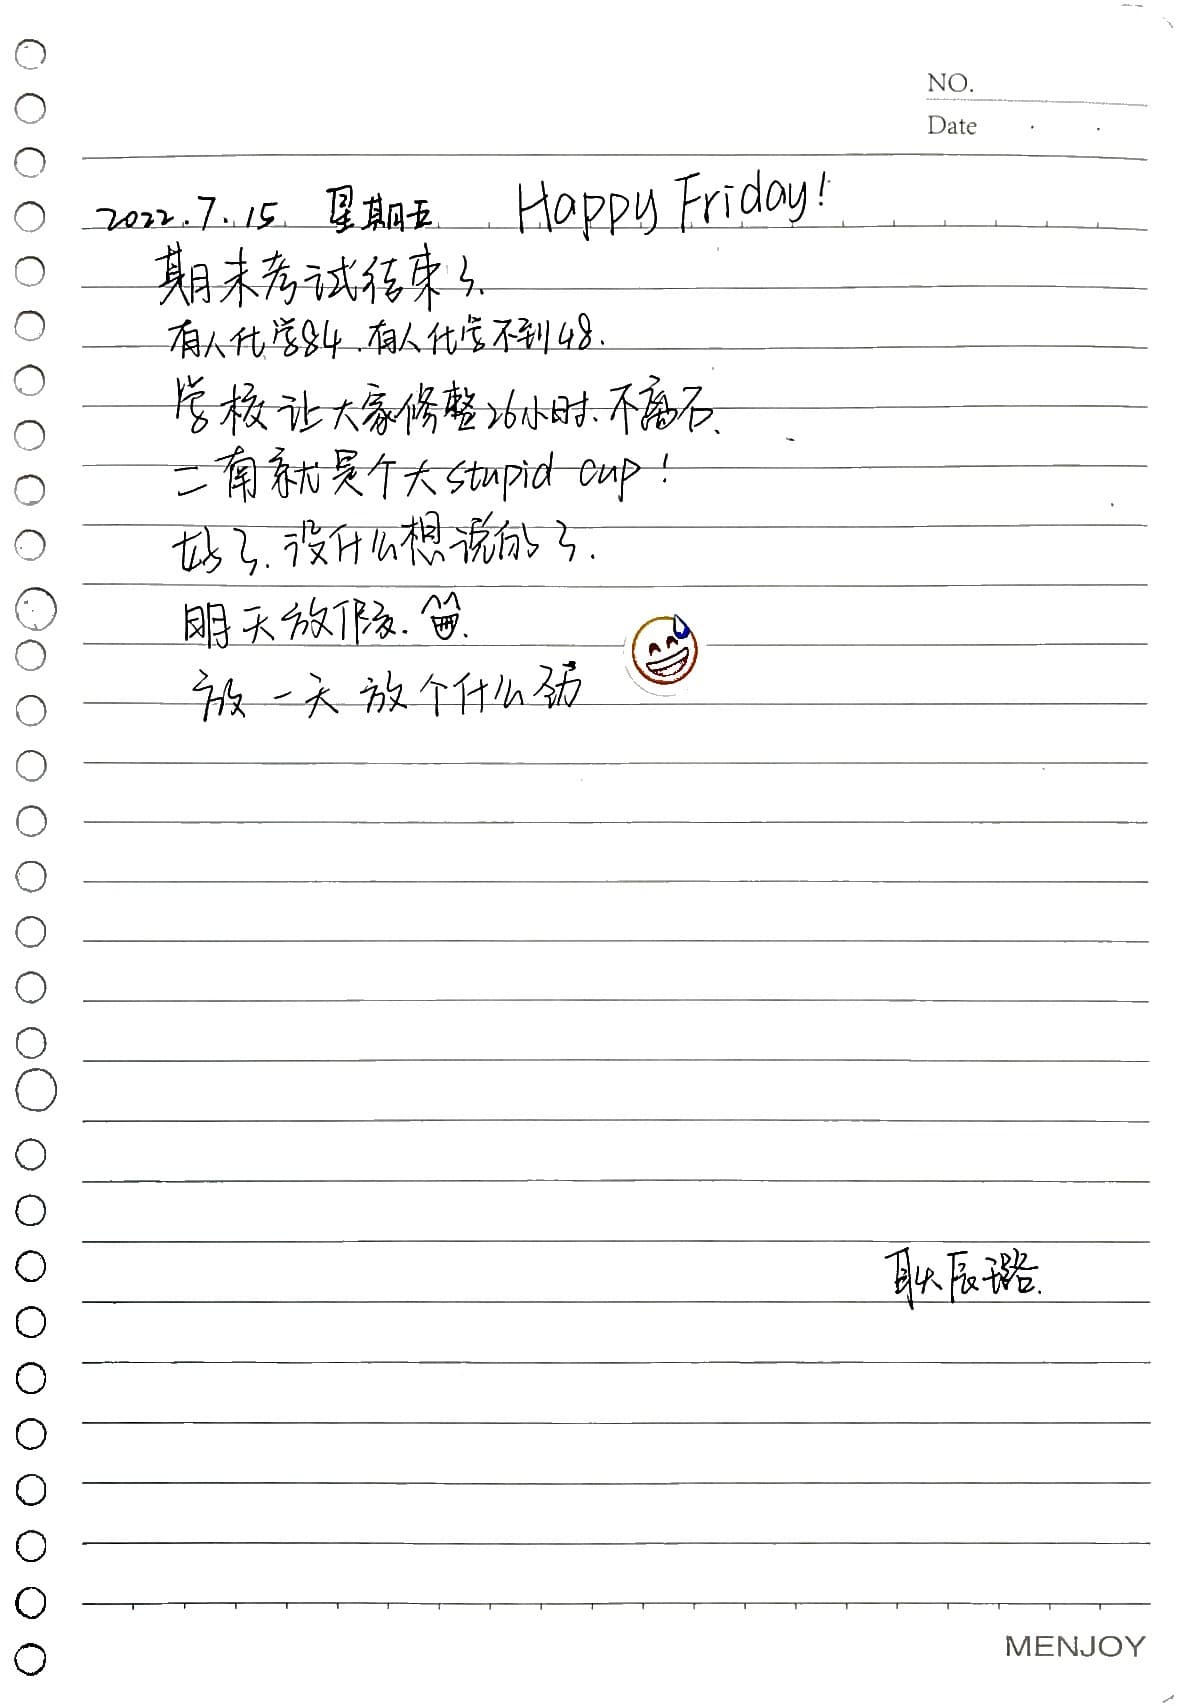 NO.
Date
2022.7.15 星期五 Happy Friday!
期末考试结束了.
有人化学84.有人化学不到48.
学校让大家修整26小时.不离石.
二南就是个大stupid cup!
好了.没什么想说的了.
明天放假.
放一天放个什么劲
耿辰璐.
MENJOY